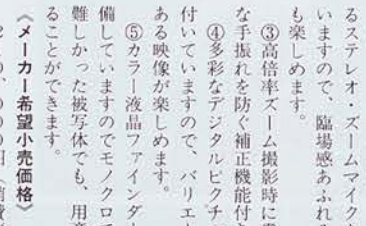 るステレオ・ズームマイク
いますので、臨場感あふれる
も楽しめます。
③高倍率ズーム撮影時に
な手振れを防ぐ補正機能付
④多彩なデジタルピクチ
付いていますので、バリエ
ある映像が楽しめます。
⑤カラー液晶ファインダ
備していますのでモノクロで
難しかった被写体でも、用意
ることができます。
《メーカー希望小売価格》